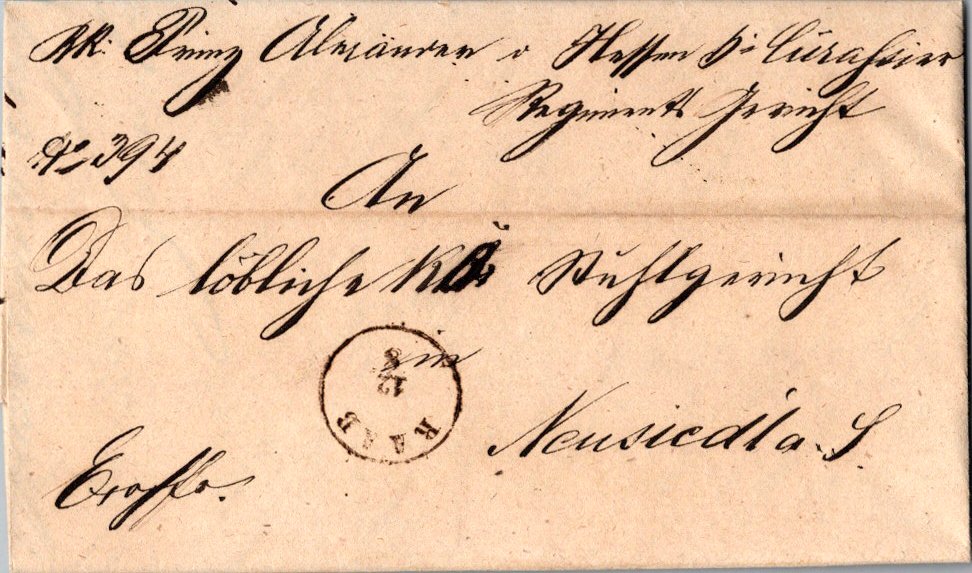 KK: Prinz Alexander v Hessen b: Cürassier
Regiments Gericht
No 394
An
Das löbliche KK Stuhlgericht
in
RAAB
Neusiedl a. S.
Exoffo.